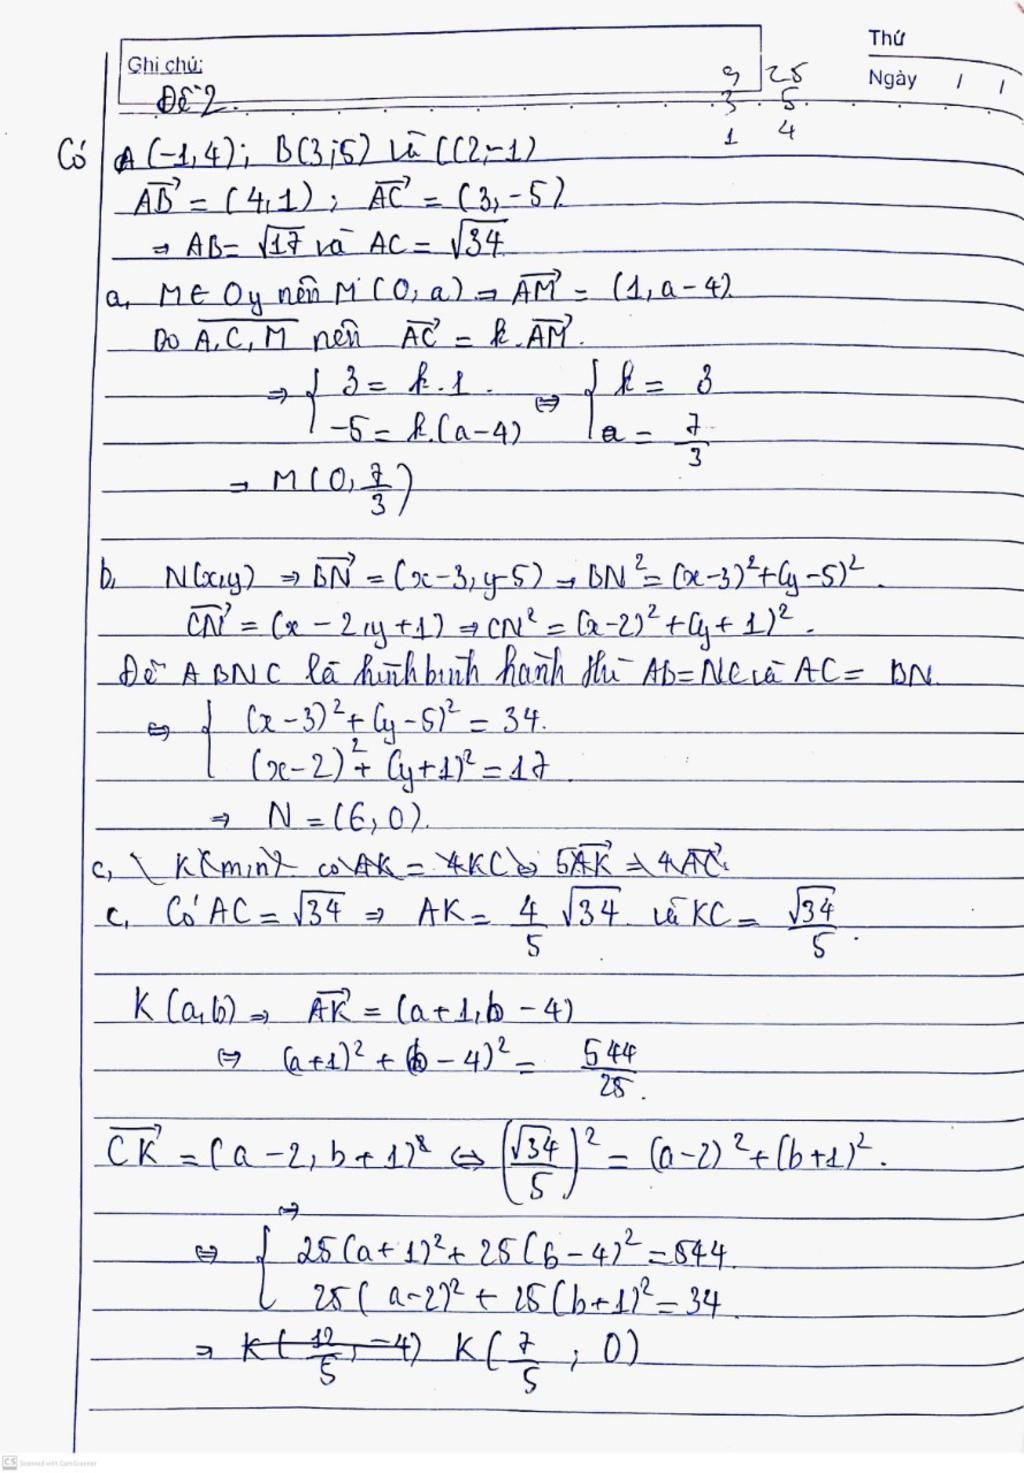 Thứ
Ghi chú:
9 25
Ngày / /
Đề 2.
3 5
1 4
Có A(-1,4); B(3;5) và C(2;-1)
$\overrightarrow{AB}$ = (4,1); $\overrightarrow{AC}$ = (3,-5)
⇒ AB = √17 và AC = √34
a, M ∈ Oy nên M(0,a) ⇒ $\overrightarrow{AM}$ = (1, a-4)
Do $\overline{A,C,M}$ nên $\overrightarrow{AC}$ = k.$\overrightarrow{AM}$.
⇒ { 3 = k.1 ⇔ { k = 3
-5 = k.(a-4) a = 7/3
⇒ M(0, 7/3)
b, N(x,y) ⇒ $\overrightarrow{BN}$ = (x-3, y-5) ⇒ BN² = (x-3)² + (y-5)².
$\overrightarrow{CN}$ = (x-2, y+1) ⇒ CN² = (x-2)² + (y+1)².
Để ABNC là hình bình hành thì AB = NC và AC = BN.
⇔ { (x-3)² + (y-5)² = 34.
(x-2)² + (y+1)² = 17
⇒ N = (6,0).
c, K(m;n) có AK = 4KC ⇔ 5$\overrightarrow{AK}$ = 4$\overrightarrow{AC}$
c, Có AC = √34 ⇒ AK = 4/5 √34 và KC = √34/5.
K(a,b) ⇒ $\overrightarrow{AK}$ = (a+1, b-4)
⇔ (a+1)² + (b-4)² = 544/25.
$\overrightarrow{CK}$ = (a-2, b+1) ⇔ (√34/5)² = (a-2)² + (b+1)².
⇒
⇔ { 25(a+1)² + 25(b-4)² = 544.
25(a-2)² + 25(b+1)² = 34
⇒ K(12/5, -4) K(7/5; 0)
CS Scanned with CamScanner